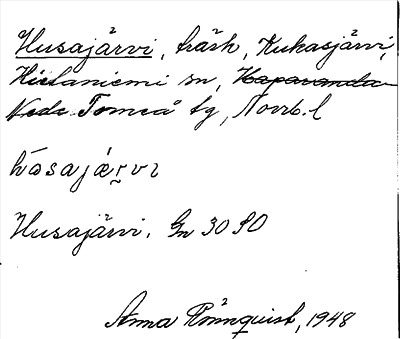 Husajärvi, träsk, Kukasjärvi,
Hietaniemi sn, Haparanda
Nedr. Torneå tg, Norrb. l
hósajǽrvi
Husajärvi. Gn 30 SO
Anna Rönnquist, 1948